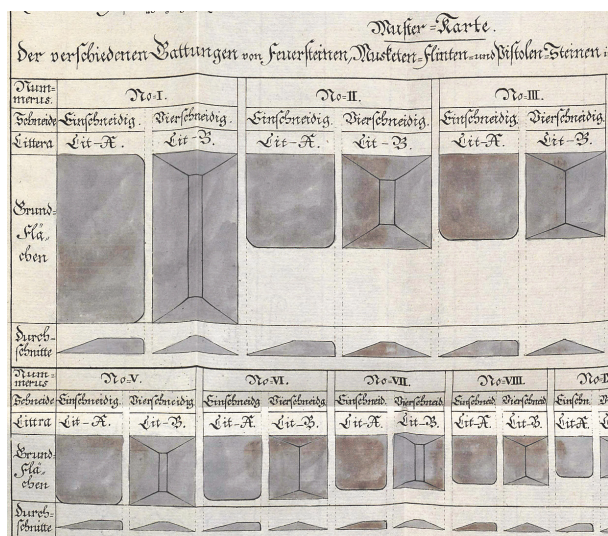 Muster=Karte.
Der verschiedenen Gattungen von Feuersteinen, Musketen=Flinten=und Pistolen=Steinen
Num=
merus.
No=I.
No=II.
No=III.
Schneide
Einschneidig.
Vierschneidig.
Einschneidig.
Vierschneidig.
Einschneidig.
Vierschneidig.
Littera
Lit=A.
Lit=B.
Lit=A.
Lit=B.
Lit=A.
Lit=B.
Grund=
Flä=
chen
Durch=
schnitte
Num=
merus
No=V.
No=VI.
No=VII.
No=VIII.
Schneide
Einschneidig.
Vierschneidig
Einschneidig.
Vierschneidg.
Einschneid.
Vierschneid.
Einschneid.
Vierschneid
Einschn.
Littra
Lit=A.
Lit=B.
Lit=A.
Lit=B.
Lit=A.
Lit=B.
Lit=A.
Lit=B.
Lit=A.
Grund=
Flä=
chen
Durch=
schnitte